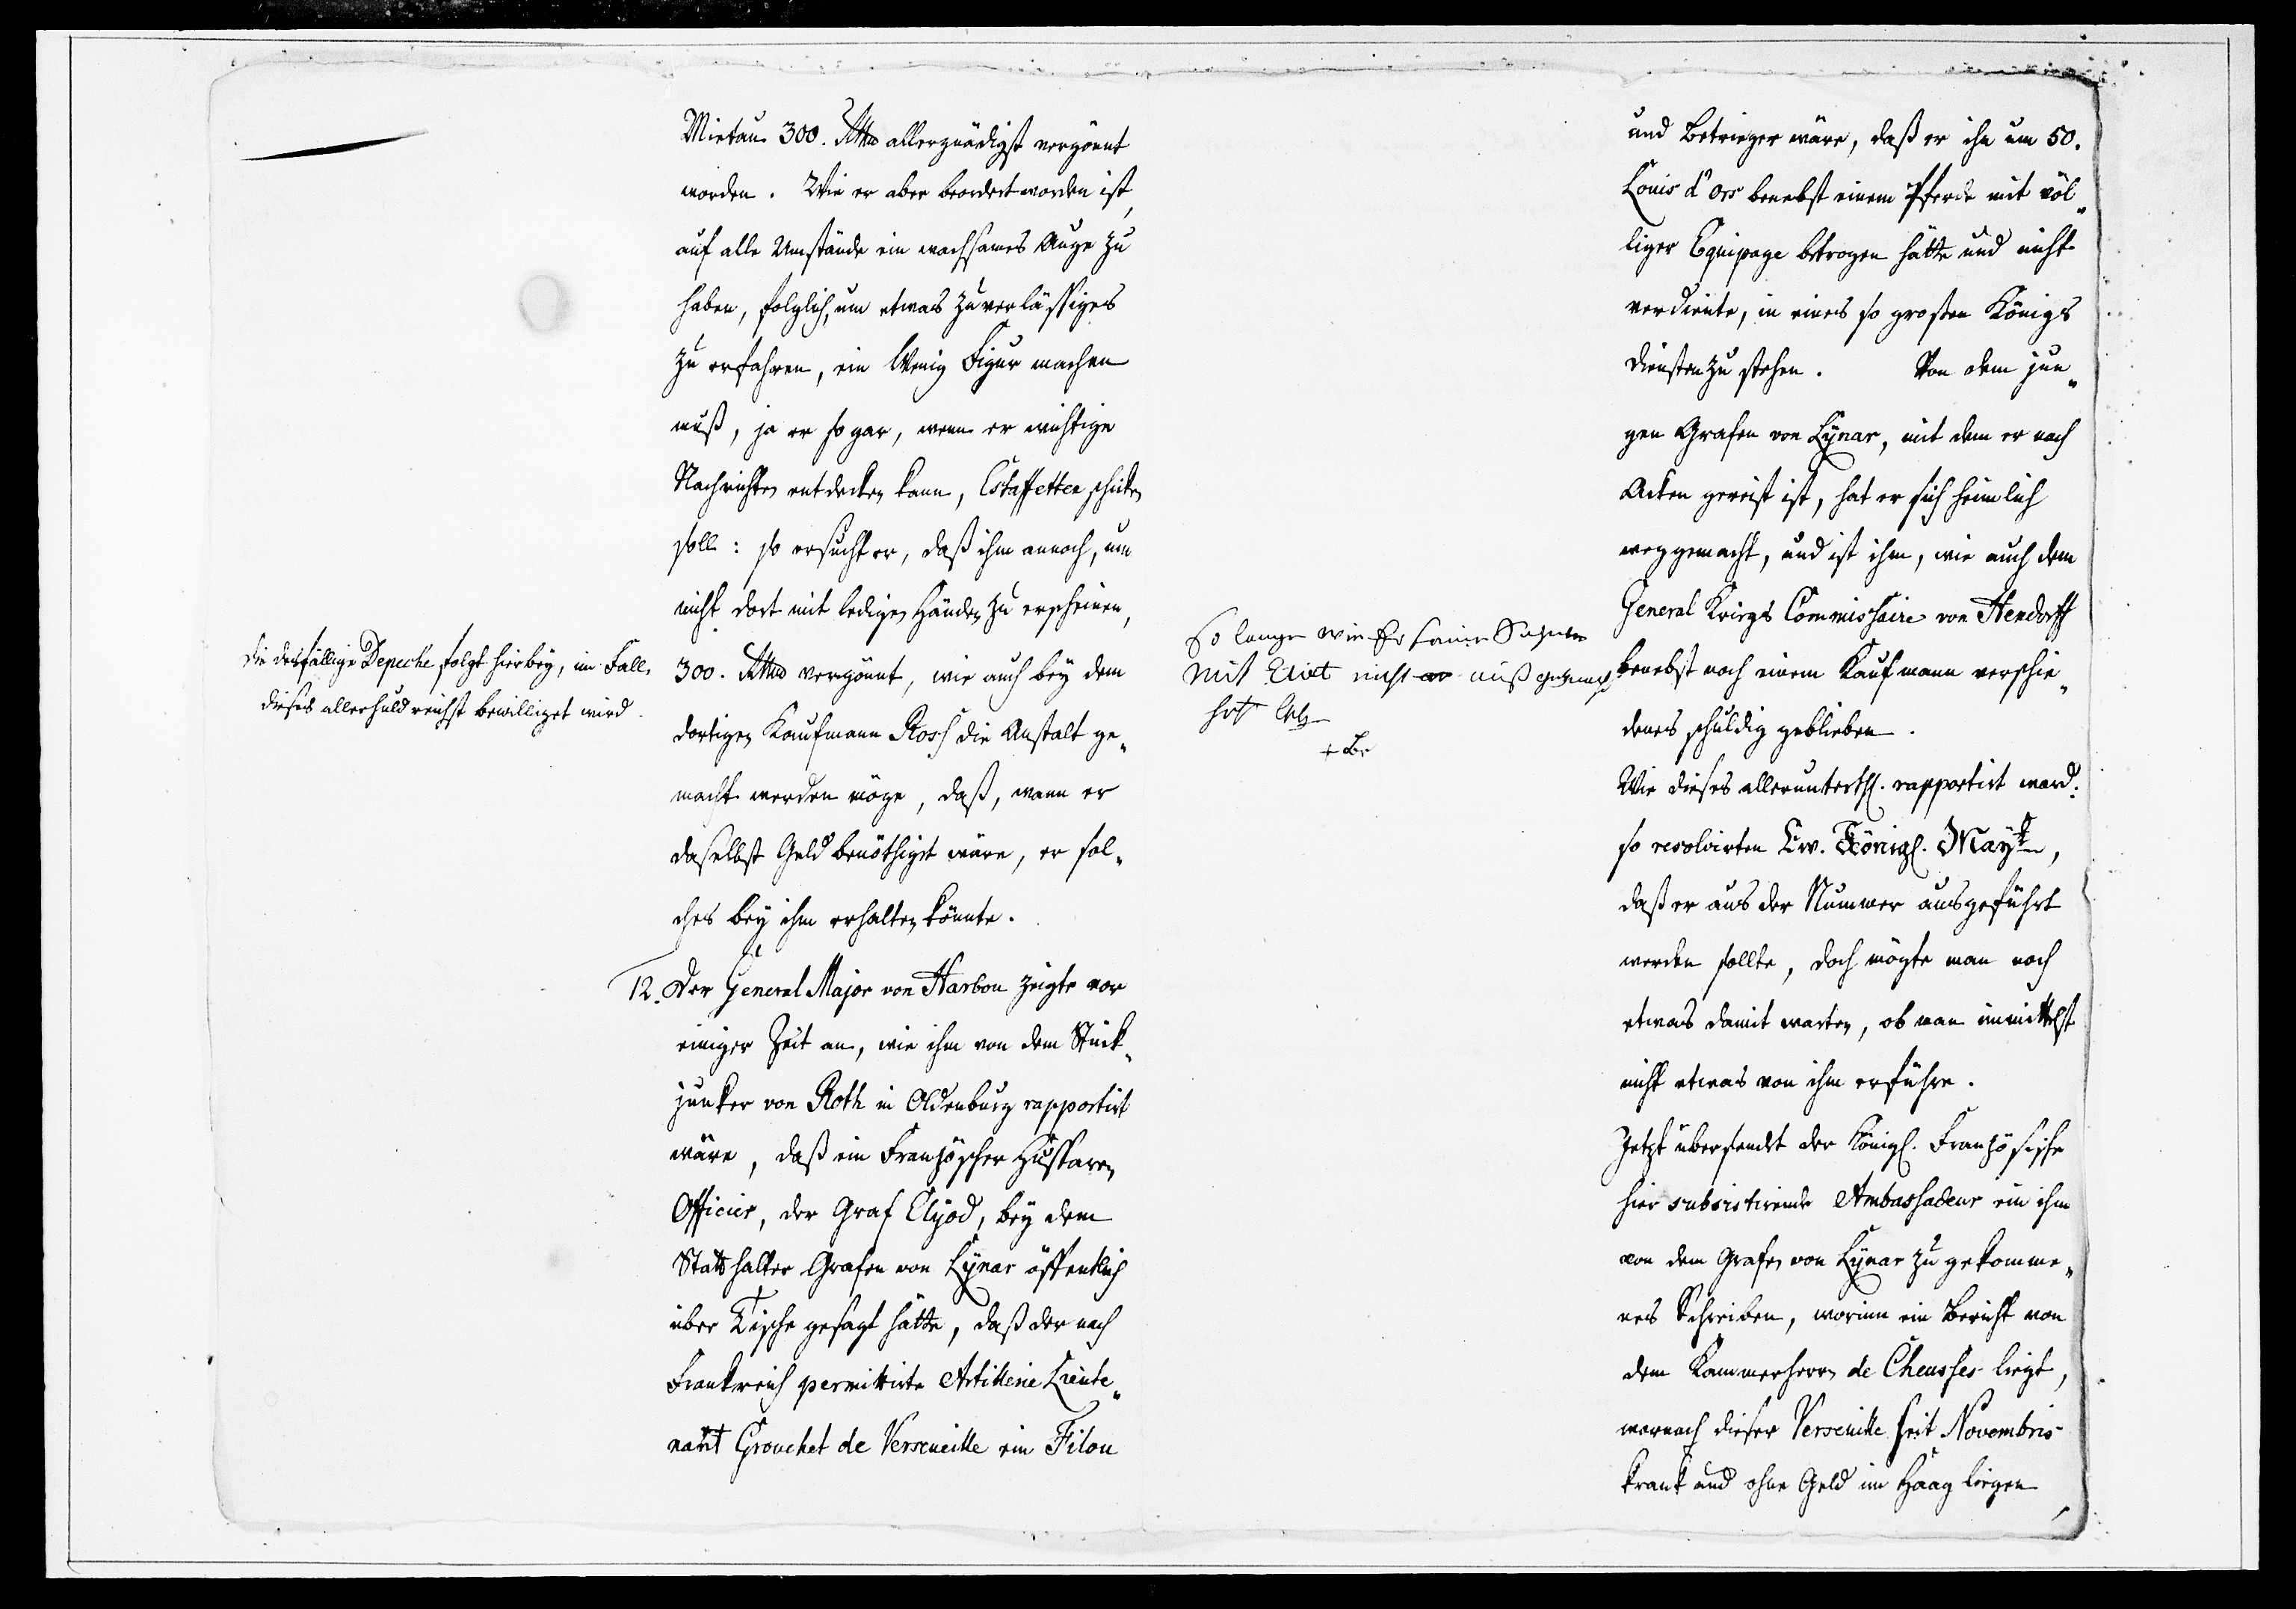 Mietau 300. Rthd allergnädigst vergönnt
worden. Wie er aber beordert worden ist,
auf alle Umstände ein wachsames Auge zu
haben, folglich, um etwas zuverlässiges
zu erfahren, ein Wenig Figur machen
muß, ja er so gar, wenn er wichtige
Nachrichten entdecken kann, Estaffetten schicken
soll: so ersucht er, daß ihm annoch, um
nicht dort mit ledigen Händen zu erscheinen,
300. Rthd vergönnt, wie auch bey dem
dortigen Kaufmann Ross die Anstalt ge„
macht werden möge, daß, wann er
daselbst Geld benöthiget wäre, er sol„
ches bey ihm erhalten könnte.
die desfällige Depeche folgt hierbey, im Fall
dieses allerhuldreichst bewilliget wird.
12. Der General Major von Harbou zeigte vor
einiger Zeit an, wie ihm von dem Stück„
junker von Roth in Oldenburg rapportirt
wäre, daß ein Französcher Hussaren
Officier, der Graf Clyod, bey dem
Statthalter Grafen von Lynar öffentlich
über Tische gesagt hätte, daß der nach
Frankreich permittirte Artillerie Lieute„
nant Grouchet de Verseneille ein Filou
und Betrieger wäre, daß er ihn um 50.
Louis d'ors benebst einem Pferde mit völ„
liger Equipage betrogen hätte und nicht
verdiente, in eines so großen Königs
Diensten zu stehen. Von dem jun„
gen Grafen von Lynar, mit dem er nach
Acken gereist ist, hat er sich heimlich
weggemacht, und ist ihm, wie auch dem
General Kriegs Commissaire von Hendorff
benebst noch einem Kaufmann verschie„
denes schuldig geblieben.
So lange wie Er seine
mit nicht
Wie dieses allerunterth. rapportirt ward:
so resolvirten Ew. Königl. Mayt,
daß er aus der Nummer ausgeführt
werden sollte, doch mögte man noch
etwas damit warten, ob man immittelst
nicht etwas von ihm erführe.
Jetzt übersendet der Königl. Französische
hier subsistirende Ambassadeur ein ihm
von dem Grafen von Lynar zu gekomme„
nes Schreiben, worinn ein Bericht von
dem Kammerherrn de Cheusses liegt,
wornach dieser Verseneille seit Novembris
krank und ohne Geld im Haag liegen